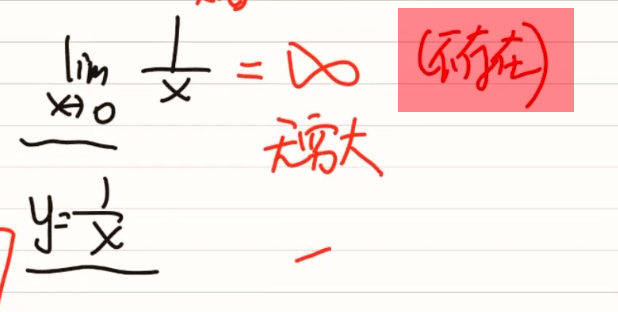 lim x→0 1/x = ∞ (不存在)
无穷大
y=1/x